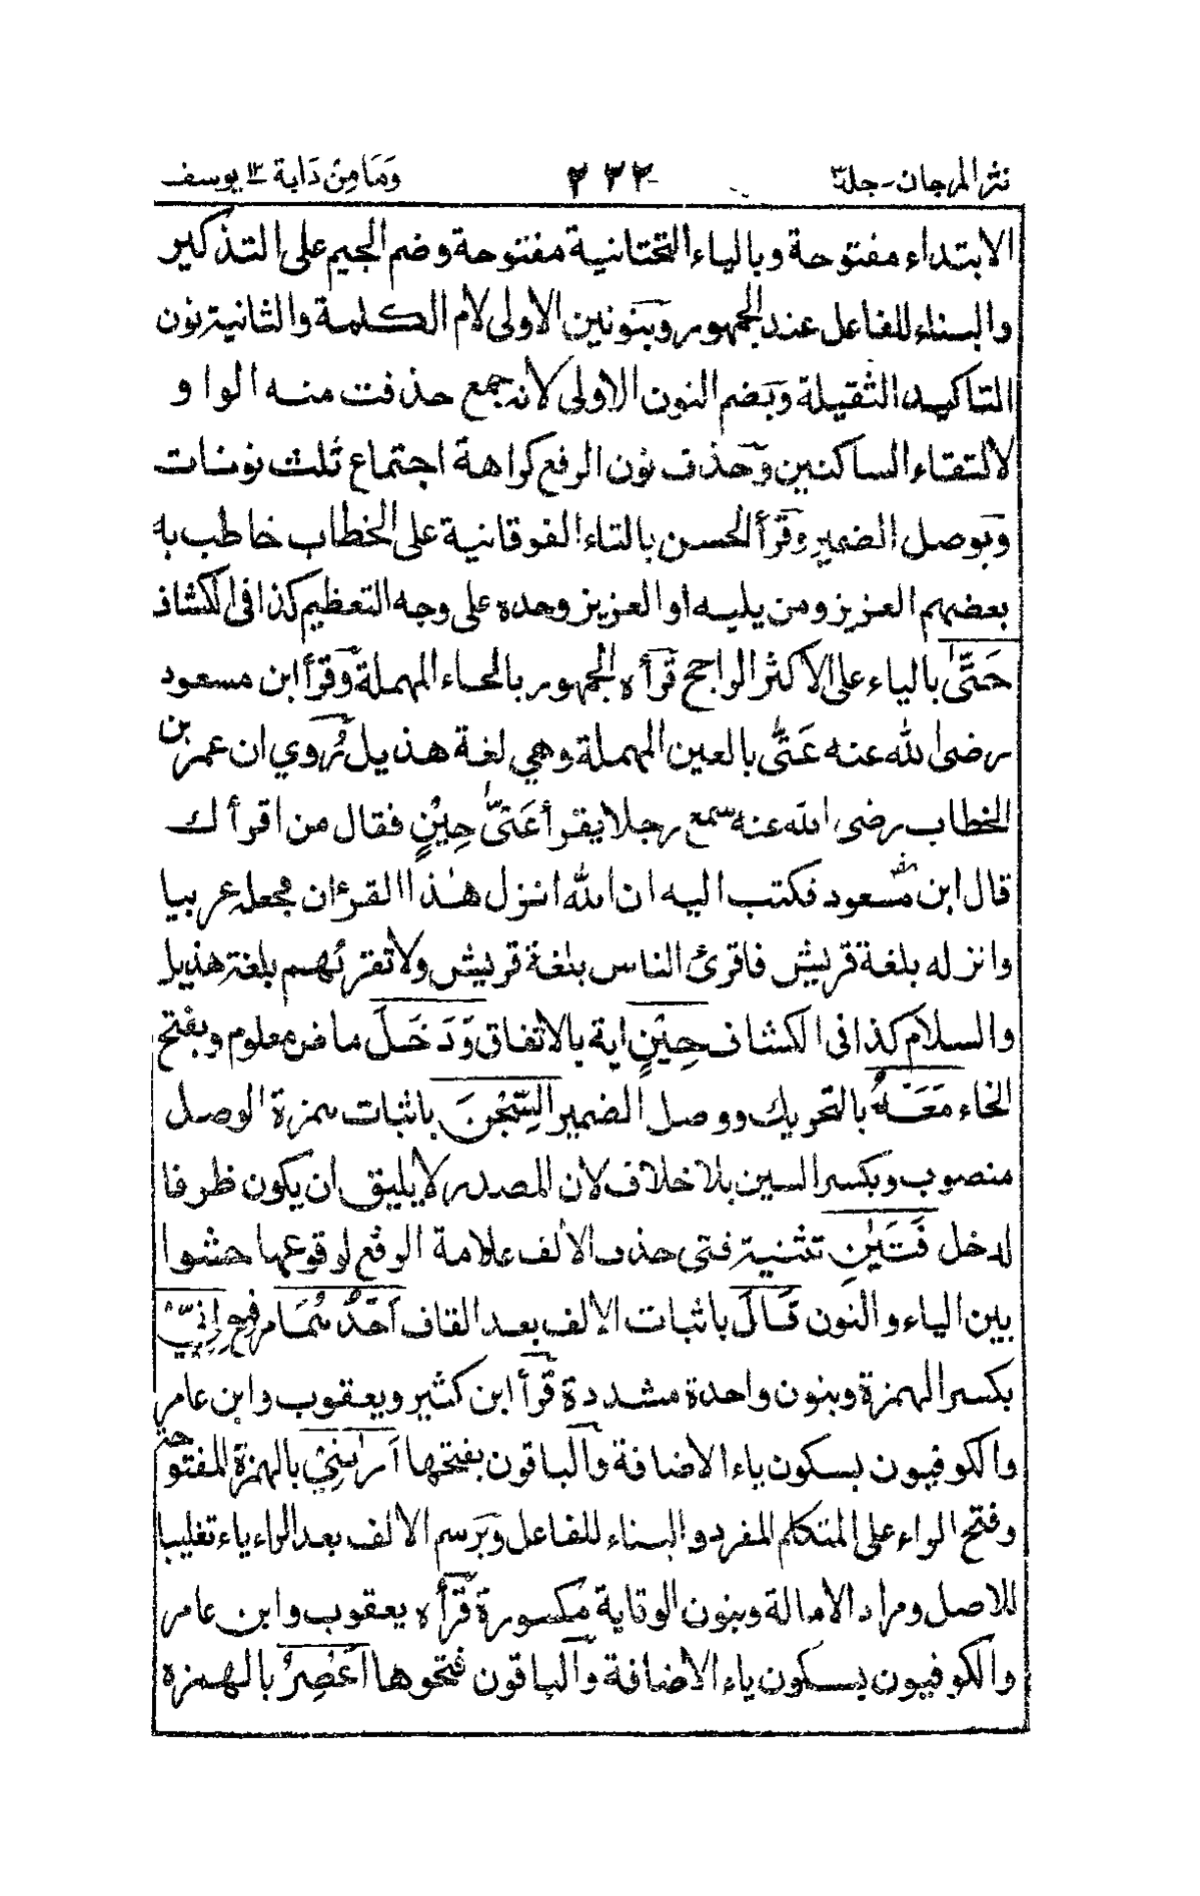 نثر المرجان-جلد٣ ٢٣٢ وَمَا مِنْ دَابة ١٢ يوسف
الابتداء مفتوحة وبالياء التحتانية مفتوحة وضم الجيم على التذكير
والبناء للفاعل عند الجمهور وبنونين الاولى لام الكلمة والثانية نون
التاكيد الثقيلة وبضم النون الاولى لانه جمع حذفت منه الواو
لالتقاء الساكنين وحذف نون الرفع كراهة اجتماع ثلث نونات
وبوصل الضمير وقرأ الحسن بالتاء الفوقانية على الخطاب خاطب به
بعضهم العزيز ومن يليه او العزيز وحده على وجه التعظيم كذا فى الكشاف
حَتّٰى بالياء على الاكثر الراجح قرأه الجمهور بالحاء المهملة وقرأ ابن مسعود
رضى الله عنه عَتّٰى بالعين المهملة وهي لغة هذيل رُوي ان عمر بن
الخطاب رضى الله عنه سمع رجلا يقرأ عَتّٰى حِيْنٍ فقال من اقرأك
قال ابن مسعود فكتب اليه ان الله انزل هٰذا القرءان فجعله عربيا
وانزله بلغة قريش فاقرئ الناس بلغة قريش ولا تقرئهم بلغة هذيل
والسلام كذا فى الكشاف حِيْنٍ اية بالاتفاق وَدَخَلَ ماض معلوم وبفتح
الخاء مَعَهُ بالتحريك ووصل الضمير السِّجْنَ باثبات همزة الوصل
منصوب وبكسر السين بلا خلاف لان المصدر لا يليق ان يكون ظرفا
لدخل فَتَيٰنِ تثنية فتى حذف الالف علامة الرفع لوقوعها حشوا
بين الياء والنون قَالَ باثبات الالف بعد القاف اَحَدُهُمَا مر فيج اِنِّيْ
بكسر الهمزة وبنون واحدة مشددة قرأ ابن كثير ويعقوب وابن عامر
والكوفيون بسكون ياء الاضافة والباقون بفتحها اَرٰىنِيْ بالهمزة المفتوحة
وفتح الراء على المتكلم المفرد والبناء للفاعل وبرسم الالف بعد الراء ياء تغليبا
للاصل ومراد الامالة وبنون الوقاية مكسورة قرأه يعقوب وابن عامر
والكوفيون بسكون ياء الاضافة والباقون فتحوها اَعْصِرُ بالهمزة